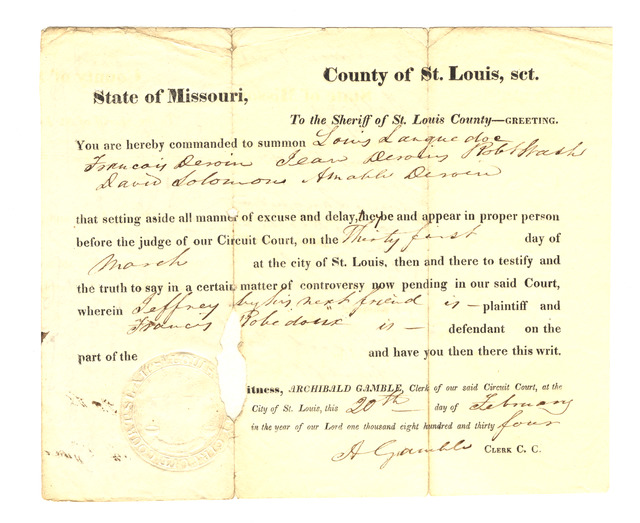 County of St. Louis, sct.
State of Missouri,
To the Sheriff of St. Louis County—GREETING.
You are hereby commanded to summon Louis Languedoc
Francois Deroin Jean Deroins Robt Wash
David Solomons Amable Deroin
that setting aside all manner of excuse and delay, they be and appear in proper person
before the judge of our Circuit Court, on the Thirty first day of
March at the city of St. Louis, then and there to testify and
the truth to say in a certain matter of controversy now pending in our said Court,
wherein Jeffrey by his next friend is — plaintiff and
Francis Robedoux is — defendant on the
part of the and have you then there this writ.
itness, ARCHIBALD GAMBLE, Clerk of our said Circuit Court, at the
City of St. Louis, this 20th day of February
in the year of our Lord one thousand eight hundred and thirty four
A Gamble CLERK C. C.